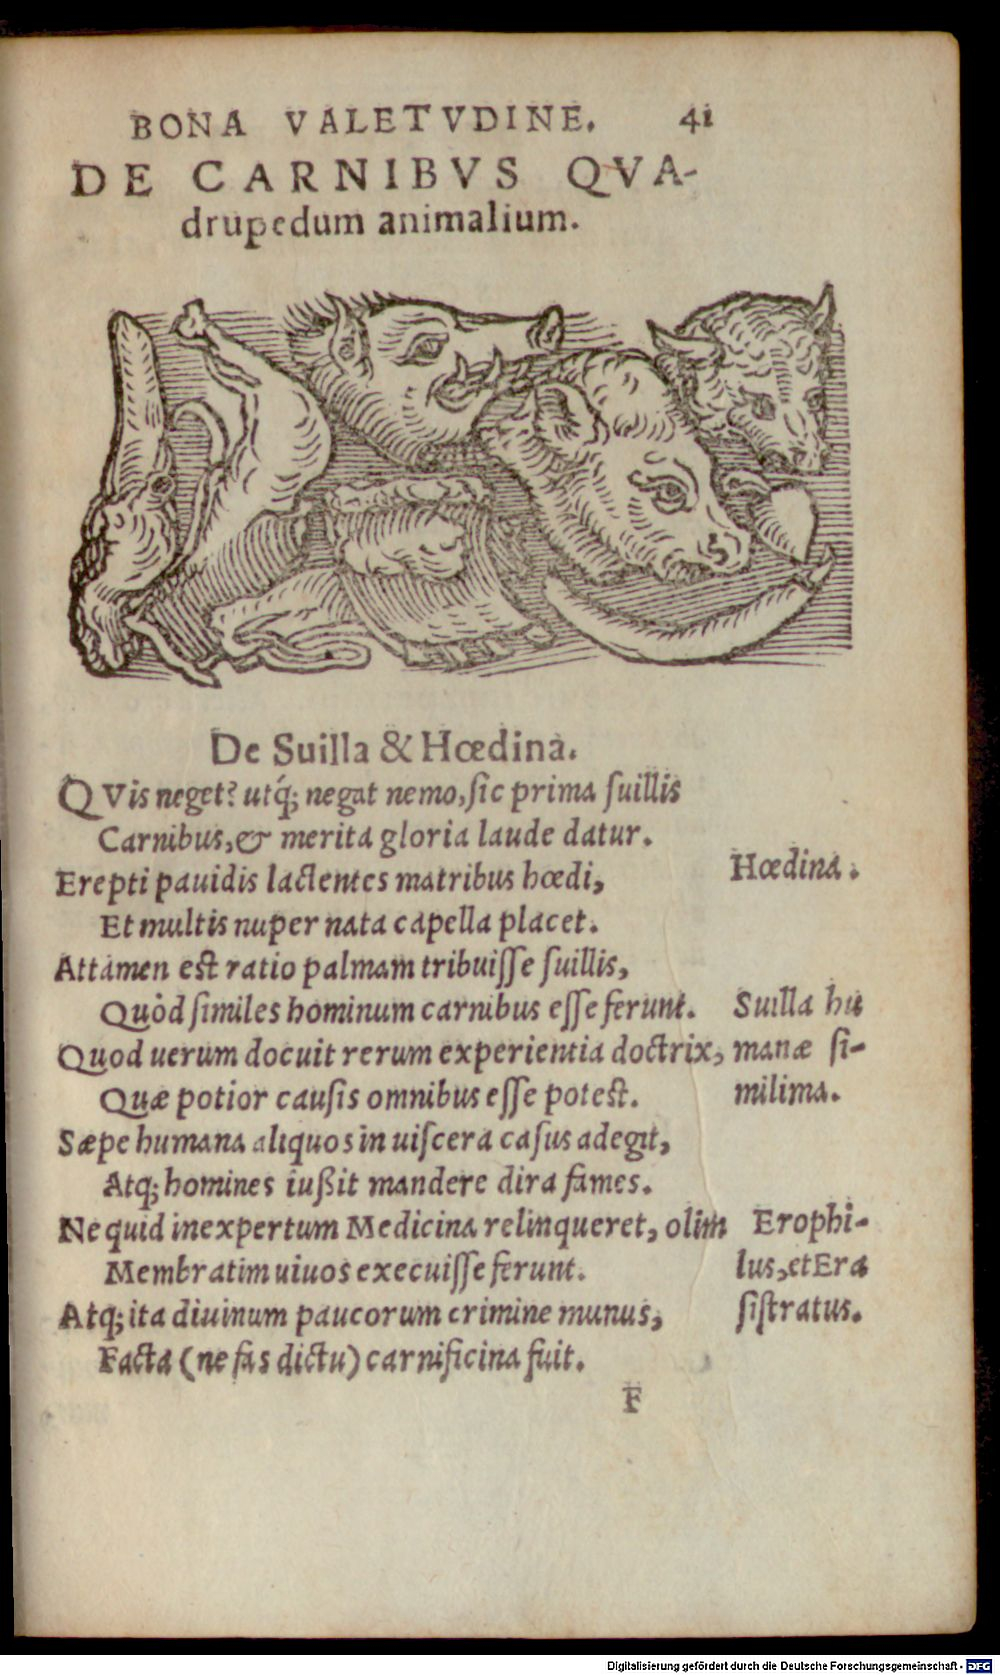 BONA VALETVDINE. 41
DE CARNIBVS QVA-
drupedum animalium.
De Suilla & Hœdina.
QVis neget? utq́; negat nemo, sic prima suillis
Carnibus, & merita gloria laude datur.
Erepti pauidis lactentes matribus hœdi,
Hœdina.
Et multis nuper nata capella placet.
Attamen est ratio palmam tribuisse suillis,
Quòd similes hominum carnibus esse ferunt.
Suilla hu
Quod uerum docuit rerum experientia doctrix,
manæ si-
Quæ potior causis omnibus esse potest.
milima.
Sæpe humana aliquos in uiscera casus adegit,
Atq; homines iußit mandere dira fames.
Ne quid inexpertum Medicina relinqueret, olim
Erophi-
Membratim uiuos execuisse ferunt.
lus, et Era
Atq; ita diuinum paucorum crimine munus,
sistratus.
Facta (ne fas dictu) carnificina fuit.
F
Digitalisierung gefördert durch die Deutsche Forschungsgemeinschaft - DFG